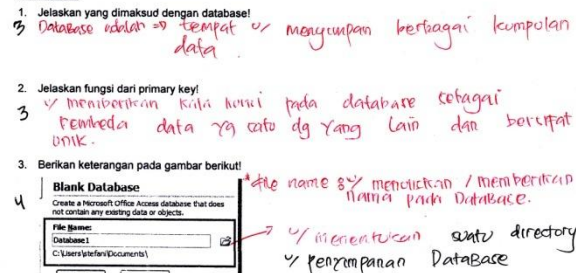 1. Jelaskan yang dimaksud dengan database!
3 Database adalah => tempat u/ menyimpan berbagai kumpulan
data.
2. Jelaskan fungsi dari primary key!
3 u/ memberikan kata kunci pada database sebagai
pembeda data yg satu dg yang lain dan bersifat
unik.
3. Berikan keterangan pada gambar berikut!
4
Blank Database
Create a Microsoft Office Access database that does
not contain any existing data or objects.
File Name:
Database1
C:\Users\stefani\Documents\
*file name : u/ menuliskan / memberikan
nama pada Database.
u/ menentukan suatu directory
u/ penyimpanan DataBase